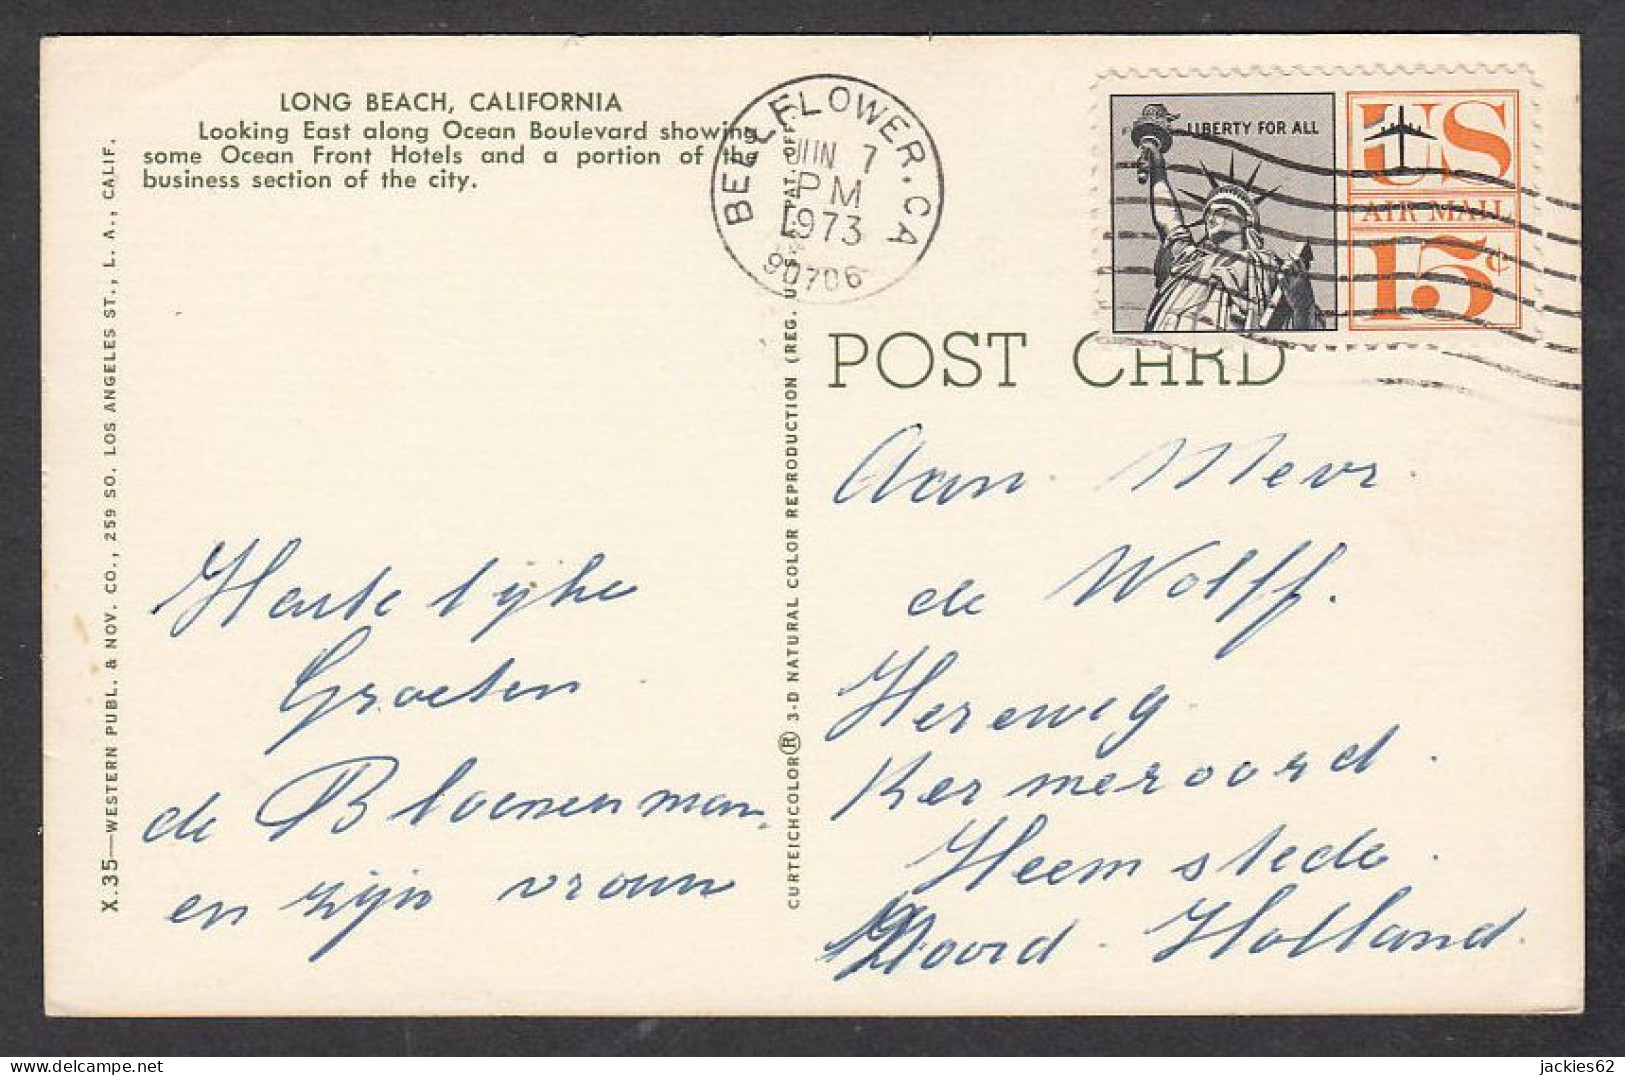 LONG BEACH, CALIFORNIA
Looking East along Ocean Boulevard showing
some Ocean Front Hotels and a portion of the
business section of the city.
X.35—WESTERN PUBL. & NOV. CO., 259 SO. LOS ANGELES ST., L. A., CALIF.
CURTEICHCOLOR® 3-D NATURAL COLOR REPRODUCTION (REG. U.S. PAT. OFF.)
BELLFLOWER, CA
JUN 7
PM
1973
90706
LIBERTY FOR ALL
US
AIR MAIL
15¢
POST CARD
Hartelijke
Groeten
de Bloemenman
en zijn vrouw
Aan Mevr.
de Wolff.
Hereweg
Kermeroord.
Heemstede.
Noord-Holland.
jackies62